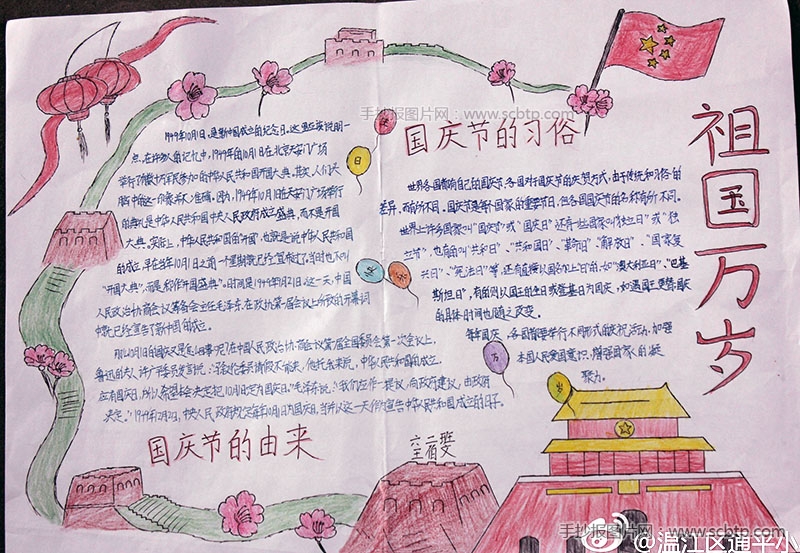 手抄报图片网:www.scbtp.com
祖国万岁
国庆节的习俗
世界各国都有自己的国庆节，各国对于国庆节的庆贺方式，由于传统和习俗的
差异，而有所不同。国庆节是每个国家的重要节日，但各国国庆节的名称有所不同。
世界上许多国家叫"国庆节"或"国庆日"，还有一些国家叫"独立日"或"独
立节"，也有的叫"共和日"、"共和国日"、"革命日"、"解放日"、"国家复
兴日"、"宪法日"等，还有直接以国名加上"日"的，如"澳大利亚日"、"巴基
斯坦日"，有的则以国王的生日或登基日为国庆，如遇国王更替，国庆
的具体时间也随之改变。
每年国庆，各国都要举行不同形式的庆祝活动，加强
本国人民爱国意识，增强国家的凝
聚力。
1949年10月1日，是新中国成立的纪念日。这里应该说明一
点，在许多人的记忆中，1949年的10月1日在北京天安门广场
举行了有数十万军民参加的中华人民共和国开国大典。其实，人们头
脑中的这一印象并不准确。因为，1949年10月1日在天安门广场举行
的典礼是中华人民共和国中央人民政府成立盛典，而不是开国
大典。实际上，中华人民共和国的"开国"，也就是说中华人民共和国
的成立，早在当年10月1日之前一个星期就已经宣布过了。当时也不叫
"开国大典"，而是称作"开国盛典"。时间是1949年9月21日。这一天，中国
人民政治协商会议筹备会主任毛泽东，在政协第一届会议上所致的开幕词
中就已经宣告了新中国的成立。
那10月1日的国庆又是怎么回事呢？在中国人民政治协商会议第一届全国委员会第一次会议上，
鲁迅的夫人许广平委员发言说：
应有国庆日，所以希望本会决定把10月1日定为国庆日。"毛泽东说："我们应作一提议，向政府建议，由政府
决定。"
国庆节的由来
六二班
日
万
岁
@温江区通平小
手抄报图片网:www.scbtp.com